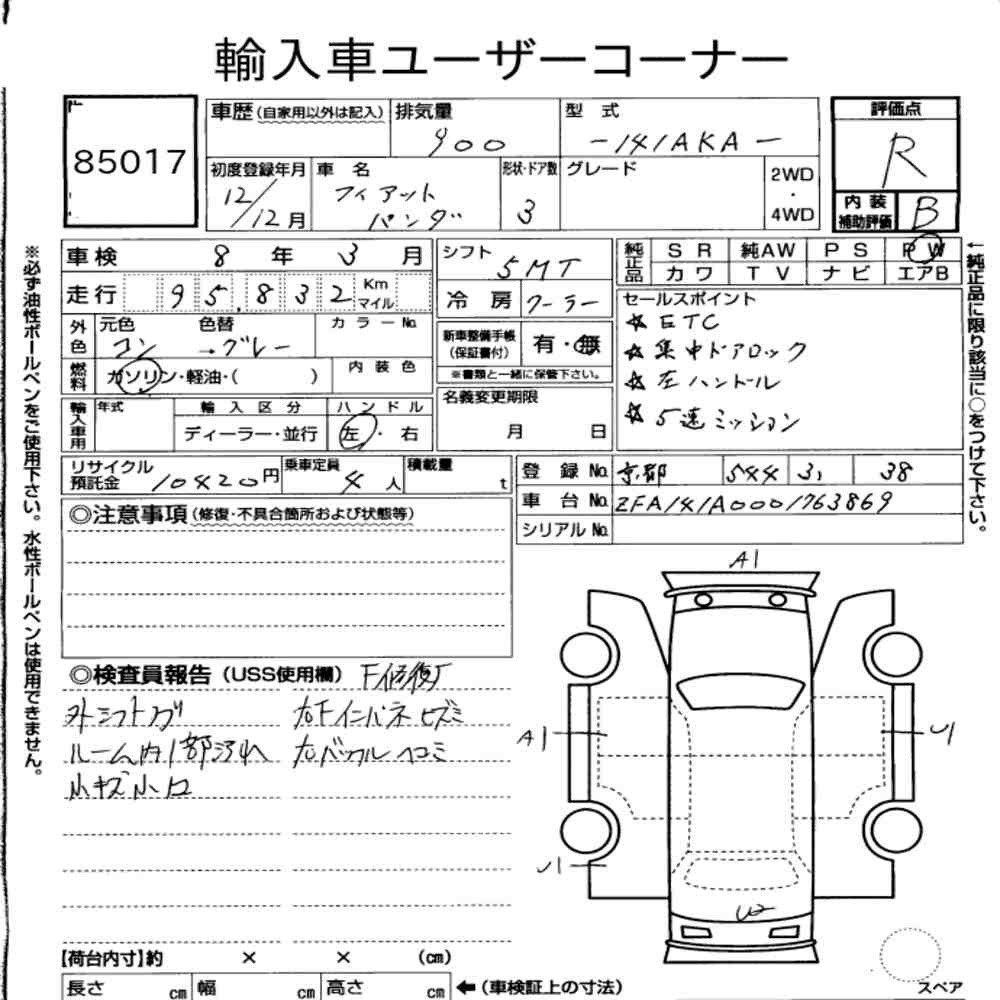 輸入車ユーザーコーナー
85017
車歴 (自家用以外は記入)
排気量 900
型式 -141AKA-
評価点 R
初度登録年月 12/12月
車名 フィアット パンダ
形状・ドア数 3
グレード
2WD・4WD
内装補助評価 B
車検 8年 3月
シフト 5MT
純正品 SR 純AW PS PW
カワ TV ナビ エアB
走行 95,832 Km マイル
冷房 クーラー
セールスポイント
☆ ETC
☆ 集中ドアロック
☆ 左ハンドル
☆ 5速ミッション
外色 元色 コン 色替 →グレー カラーNo.
新車整備手帳(保証書付) 有・無
※書類と一緒に保管下さい。
燃料 ガソリン・軽油・( ) 内装色
名義変更期限 月 日
輸入車用 年式 輸入区分 ハンドル
ディーラー・並行 左・右
リサイクル預託金 10420円 乗車定員 4人 積載量 t
登録No. 京都 544 3, 38
車台No. ZFA141A0001763869
シリアルNo.
◎注意事項 (修復・不具合箇所および状態等)
◎検査員報告 (USS使用欄) F修復歴
外シフトブ 右Fインパネヒズミ
ルーム内1部汚れ 右バックルヘコミ
小キズ小凹
A1
A1
U1
U2
【荷台内寸】約 × × (cm)
長さ cm 幅 cm 高さ cm ←(車検証上の寸法)
スペア
※必ず油性ボールペンをご使用下さい。水性ボールペンは使用できません。
←純正品に限り該当に○をつけて下さい。